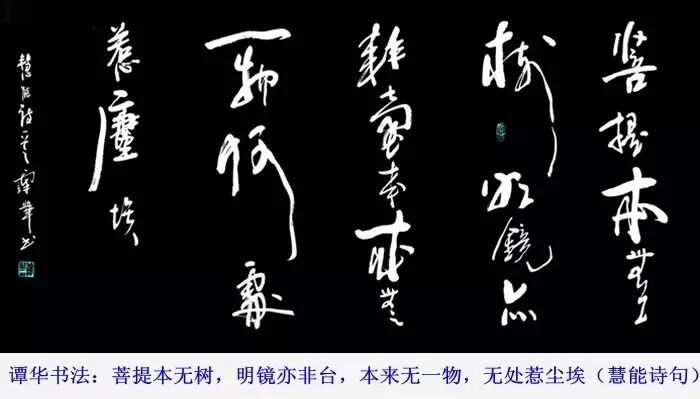 菩提本無
樹明鏡亦
非臺本來無
一物何處
惹塵埃
慧能詩一首譚華书
谭华书法：菩提本无树，明镜亦非台，本来无一物，无处惹尘埃（慧能诗句）